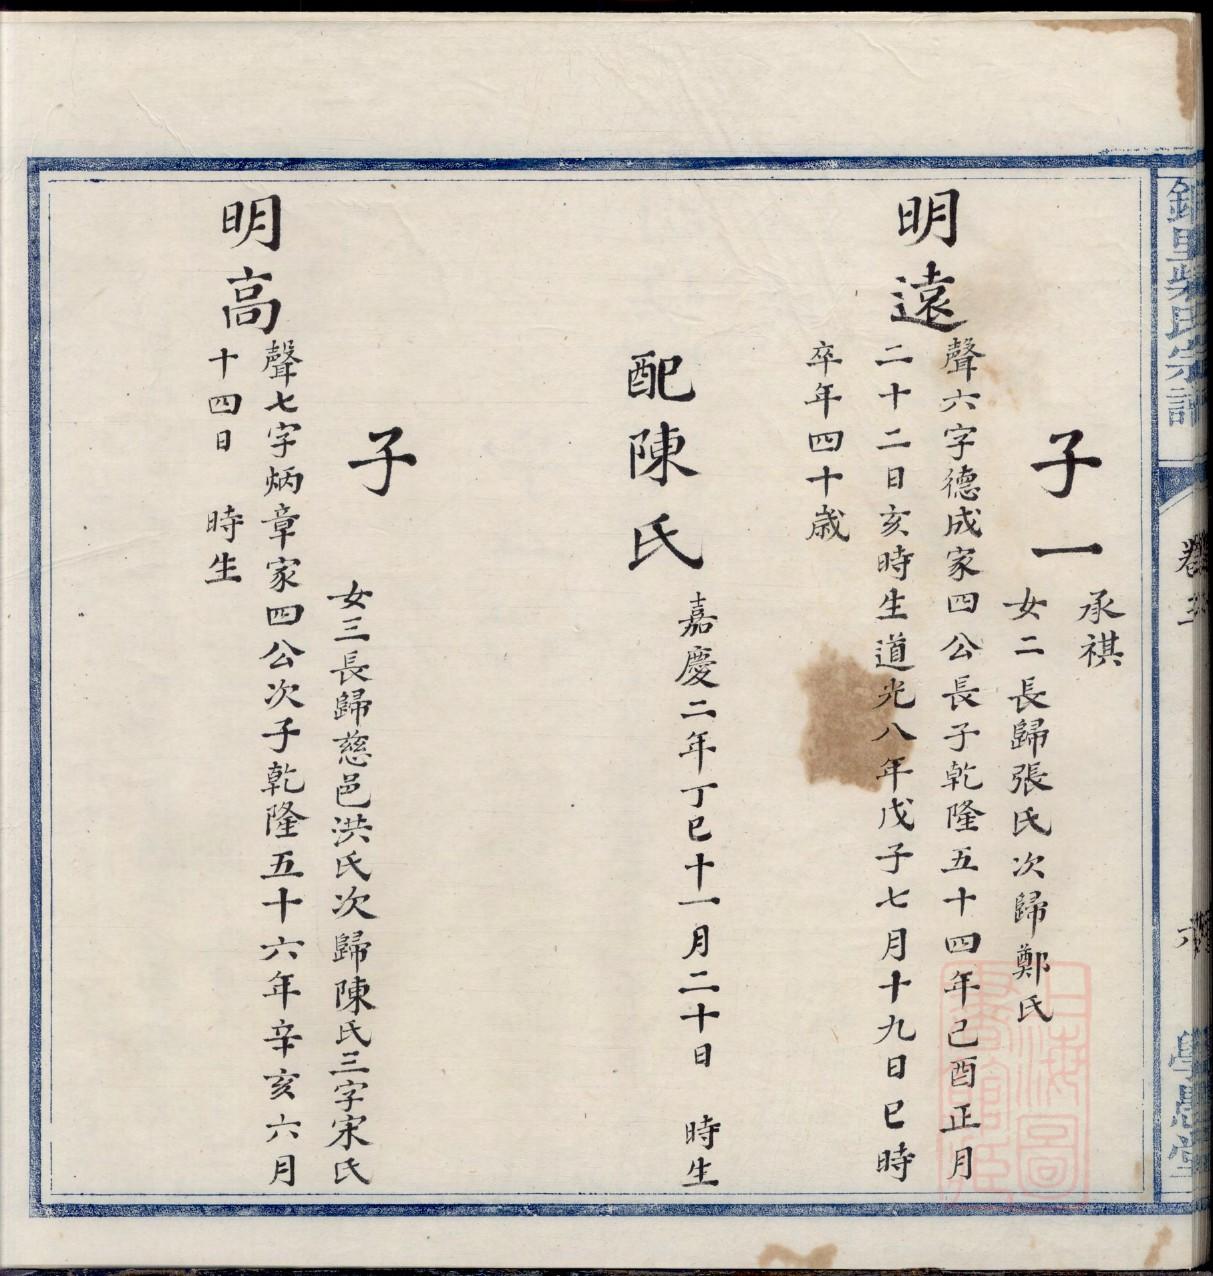 柴氏宗譜
卷三
六
學愚堂
承祺
子一
女二長歸張氏次歸鄭氏
明遠
聲六字德成家四公長子乾隆五十四年己酉正月
二十二日亥時生道光八年戊子七月十九日巳時
卒年四十歲
配陳氏
嘉慶二年丁巳十一月二十日 時生
子
女三長歸慈邑洪氏次歸陳氏三字宋氏
明高
聲七字炳章家四公次子乾隆五十六年辛亥六月
十四日 時生
上海圖
書館藏